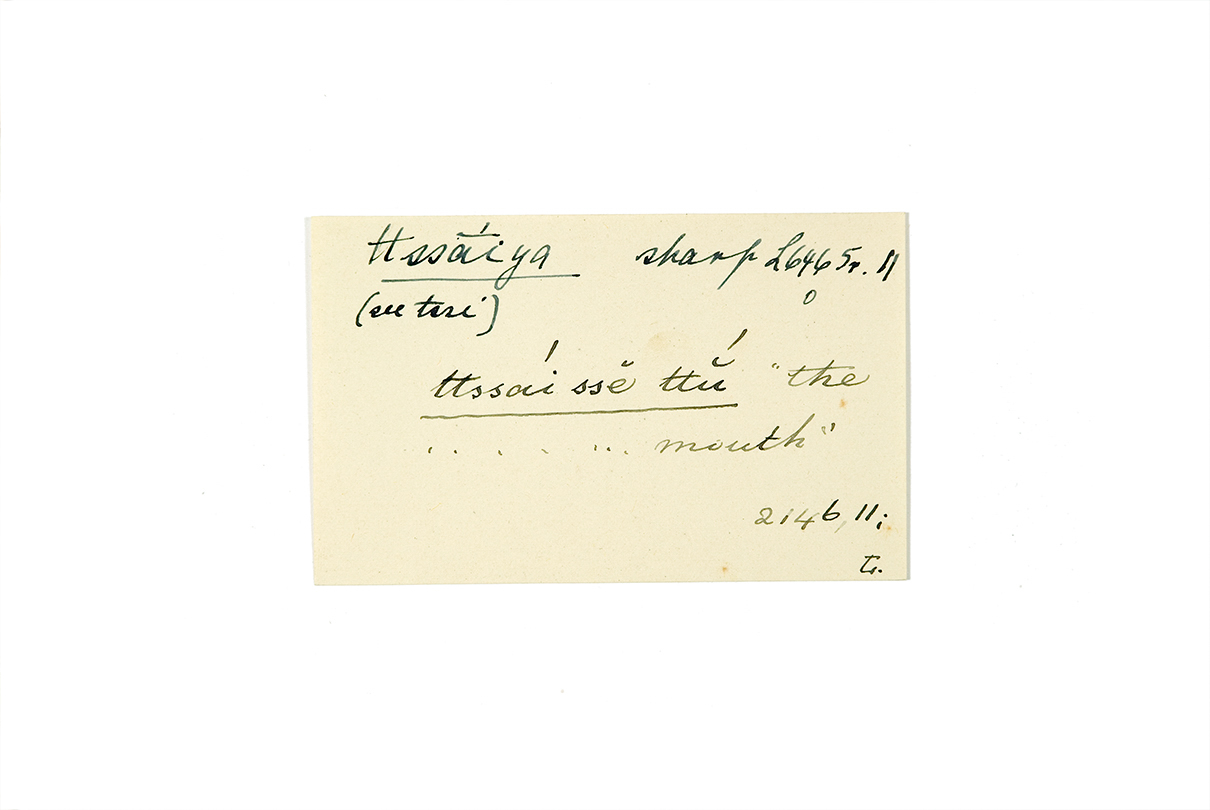 ttssā́iya sharp L 646 5r. 11
(see tssi)
ttssái ssĕ ttŭ́ "the
. . . . ... mouth"
2146, 11;
tr.